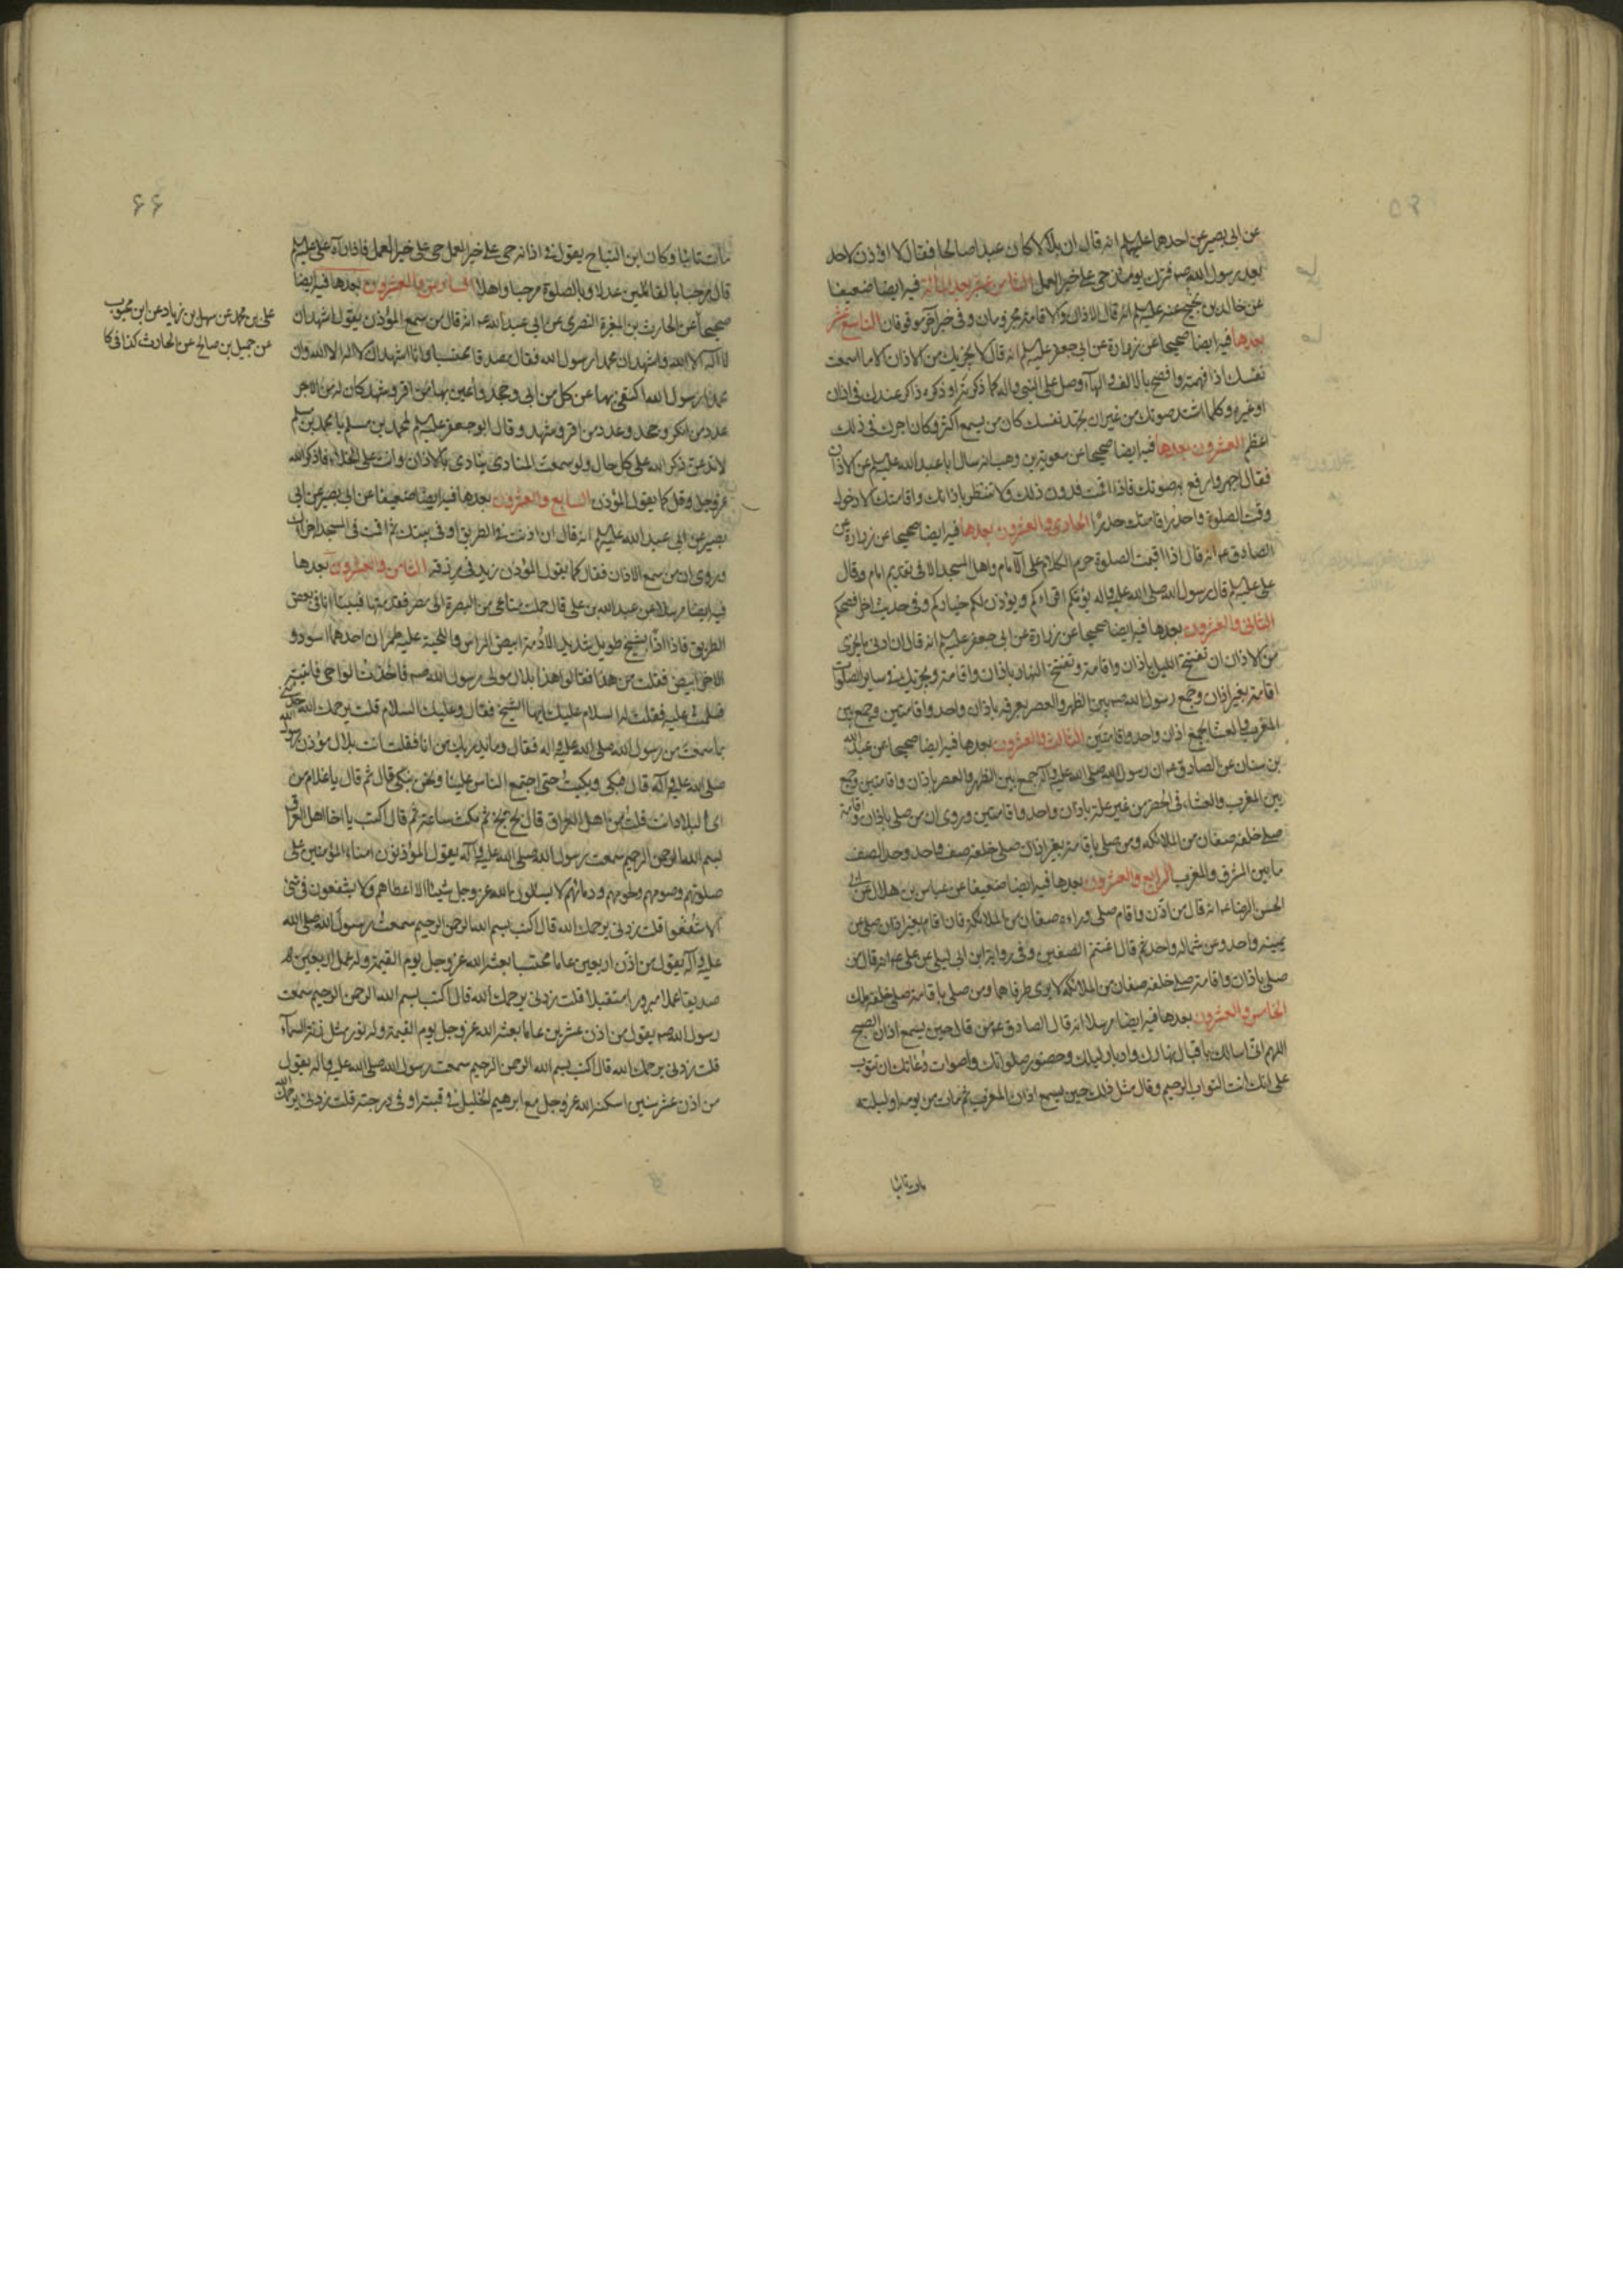 عن ابي بصير عن احدهما عليهم انه قال ان بلالا كان عبدا صالحا فقال لا اؤذن لاحد
بعد رسول الله صم فترك يومئذ حي على خير العمل الثامن عشر بعد الثالثة فيه ايضا ضعيفا
عن خالد بن نجيح عنه عليه السلم انه قال الاذان والاقامة مجزومان وفي خبر آخر موقوفان التاسع عشر
بعدها فيه ايضا صحيحا عن زرارة عن ابي جعفر عليه السلم انه قال لا يجزيك من الاذان الا ما اسمعت
نفسك اذا فهمته وافصح بالالف والهاء وصل على النبي واله كما ذكرته او ذكره ذاكر عندك في اذان
او غيره وكلما اشتد صوتك من غير ان تجهد نفسك كان من يسمع اكثر وكان اجرك في ذلك
اعظم العشرون بعدها فيه ايضا صحيحا عن معوية بن وهب انه سال ابا عبد الله عليه السلم عن الاذان
فقال اجهر وارفع به صوتك فاذا اقمت فدون ذلك ولا تنتظر باذانك واقامتك الا دخول
وقت الصلوة واحدر اقامتك حدرا الحادي والعشرون بعدها فيه ايضا صحيحا عن زرارة عن
الصادق عم انه قال اذا اقيمت الصلوة حرم الكلام على الامام واهل المسجد الا في تقديم امام وقال
علي عليه السلم قال رسول الله صلى الله عليه واله يؤمكم اقراءكم ويؤذن لكم خياركم وفي حديث اخر افصحكم
الثاني والعشرون بعدها فيه ايضا صحيحا عن زرارة عن ابي جعفر عليه السلم انه قال ان ادنى ما يجزي
من الاذان ان تفتتح الليل باذان واقامة وتفتتح النهار باذان واقامة ويجزيك في ساير الصلوات
اقامة بغير اذان وجمع رسول الله صم بين الظهر والعصر بعرفة باذان واحد واقامتين وجمع بين
المغرب والعشا بجمع اذان واحد واقامتين الثالث والعشرون بعدها فيه ايضا صحيحا عن عبد الله
بن سنان عن الصادق عم ان رسول الله صلى الله عليه وآله جمع بين الظهر والعصر باذان واقامتين وجمع
بين المغرب والعشاء في الحضر من غير علة باذان واحد واقامتين وروى ان من صلى باذان واقامة
صلى خلفه صفان من الملائكة ومن صلى باقامة بغير اذان صلى خلفه صف واحد وحد الصف
ما بين المشرق والمغرب الرابع والعشرون بعدها فيه ايضا ضعيفا عن عباس بن هلال عن ابي
الحسن الرضا عم انه قال من اذن واقام صلى وراءه صفان من الملائكة فان اقام بغير اذان صلى عن
يمينه واحد وعن شماله واحد ثم قال اغتنم الصفين وفي رواية ابن ابي ليلى عن علي عم انه قال من
صلى باذان واقامة صلى خلفه صفان من الملائكة لا يرى طرفاهما ومن صلى باقامة صلى خلفه ملك
الخامس والعشرون بعدها فيه ايضا مرسلا انه قال الصادق عم من قال حين يسمع اذان الصبح
اللهم اني اسالك باقبال نهارك وادبار ليلك وحضور صلواتك واصوات دعائك ان تتوب
علي انك انت التواب الرحيم وقال مثل ذلك حين يسمع اذان المغرب ثم مات من يومه او ليلته
مات تائبا
۶۶
مات تائبا وكان ابن النباح يقول في اذانه حي على خير العمل حي على خير العمل فاذا رآه علي عليه السلم
قال مرحبا بالقائلين عدلا وبالصلوة مرحبا واهلا السادس والعشرون بعدها فيه ايضا
صحيحا عن الحارث بن المغيرة النصري عن ابي عبد الله عم انه قال من سمع المؤذن يقول اشهد ان
لا اله الا الله واشهد ان محمدا رسول الله فقال مصدقا محتسبا وانا اشهد ان لا اله الا الله وان
محمدا رسول الله اكتفي بها عن كل من ابى وجحد واعين بها من اقر وشهد كان له من الاجر
عدد من انكر وجحد وعدد من اقر وشهد وقال ابو جعفر عليه السلم لمحمد بن مسلم يا محمد بن مسلم
لا تدعن ذكر الله على كل حال ولو سمعت المنادي ينادي بالاذان وانت على الخلاء فاذكر الله
عز وجل وقل كما يقول المؤذن السابع والعشرون بعدها فيه ايضا ضعيفا عن ابي بصير عن ابي
بصير عن ابي عبد الله عليه السلم انه قال ان اذنت في الطريق او في بيتك ثم اقمت في المسجد اجزاك
وروى ان من سمع الاذان فقال كما يقول المؤذن زيد في رزقه الثامن والعشرون بعدها
فيه ايضا مرسلا عن عبد الله بن علي قال حملت متاعي من البصرة الى مصر فقدمتها فبينا انا في بعض
الطريق فاذا انا بشيخ طويل شديد الادمة ابيض الراس واللحية عليه طمران احدهما اسود و
الاخر ابيض فقلت من هذا فقالوا هذا بلال مولى رسول الله صم فاخذت الواحي فاتيته
فسلمت عليه فقلت له السلام عليك ايها الشيخ فقال وعليك السلام قلت يرحمك الله حدثني
بما سمعت من رسول الله صلى الله عليه واله فقال وما يدريك من انا فقلت انت بلال مؤذن رسول الله
صلى الله عليه وآله قال فبكى وبكيت حتى اجتمع الناس علينا ونحن نبكي قال ثم قال يا غلام من
اي البلاد انت قلت من اهل العراق قال بخ بخ بخ ثم مكث ساعة ثم قال اكتب يا اخا اهل العراق
بسم الله الرحمن الرحيم سمعت رسول الله صلى الله عليه وآله يقول المؤذنون امناء المؤمنين على
صلوتهم وصومهم ولحومهم ودمائهم لا يسالون الله عز وجل شيئا الا اعطاهم ولا يشفعون في شئ
الا شفعوا قلت زدني يرحمك الله قال اكتب بسم الله الرحمن الرحيم سمعت رسول الله صلى الله
عليه وآله يقول من اذن اربعين عاما محتسبا بعثه الله عز وجل يوم القيمة وله عمل اربعين
صديقا عملا مبرورا متقبلا قلت زدني يرحمك الله قال اكتب بسم الله الرحمن الرحيم سمعت
رسول الله صم يقول من اذن عشرين عاما بعثه الله عز وجل يوم القيمة وله نور مثل زنة السماء
قلت زدني يرحمك الله قال اكتب بسم الله الرحمن الرحيم سمعت رسول الله صلى الله عليه واله يقول
من اذن عشر سنين اسكنه الله عز وجل مع ابرهيم الخليل في قبته او في درجته قلت زدني يرحمك الله
علي بن محمد عن سهل بن زياد عن ابن محبوب
عن جميل بن صالح عن الحارث كذا في كا